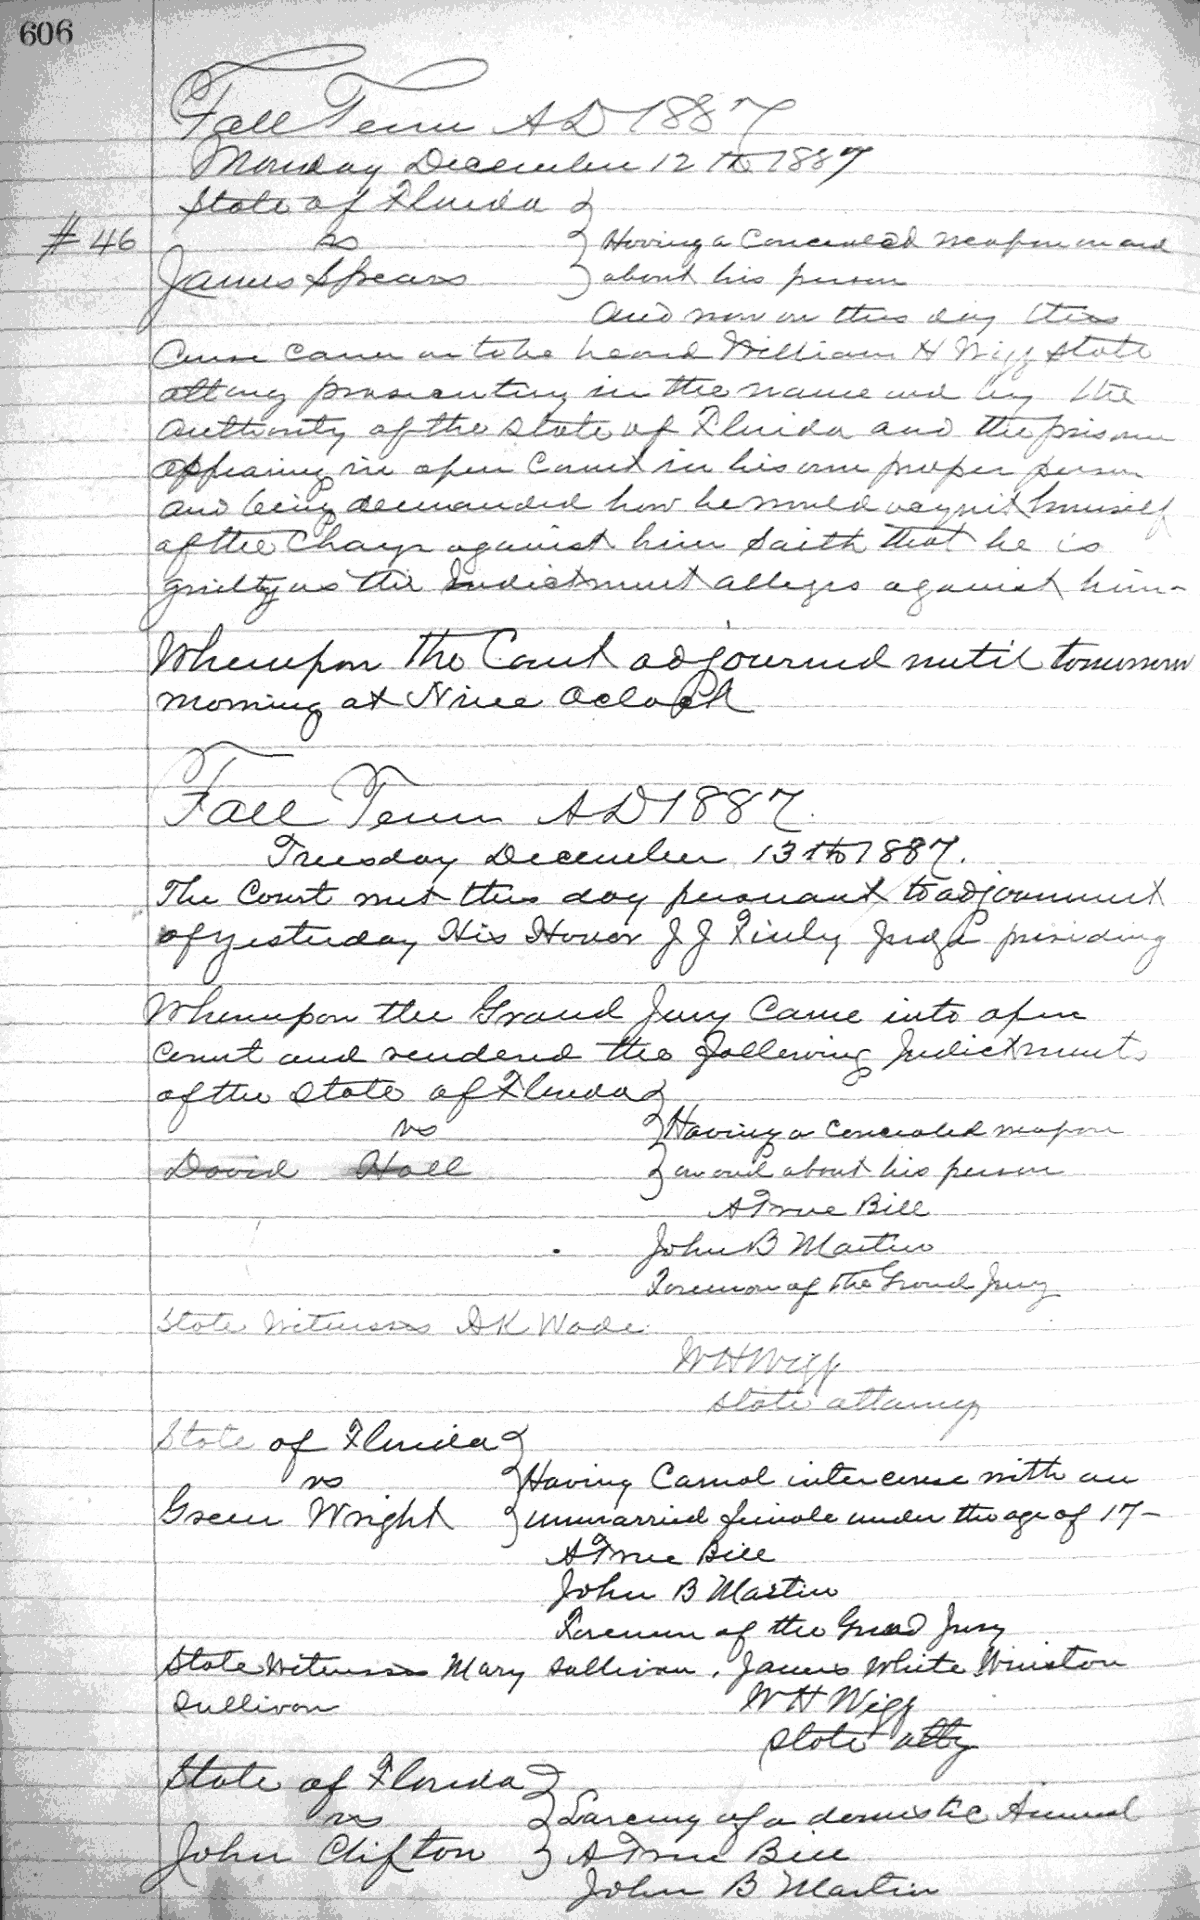 606
Fall Term AD 1887
Monday December 12th 1887
State of Florida
#46 vs Having a Concealed weapon on and
James Spears about his person
And now on this day this
Cause came on to be heard William H Wigg State
attony prosecuting in the name and by the
Authority of the State of Florida and the prisoner
appearing in open Court in his own proper person
and being demanded how he would acquit himself
of the Charge against him Saith that he is
guilty as the Indictment alleges against him-
Whereupon the Court adjourned until tomorrow
morning at Nine Oclock
Fall Term AD 1887.
Tuesday December 13th 1887.
The Court met this day persuant to adjournment
of yesterday His Honor J J Finly Judge presiding
Whereupon the Grand Jury Came into open
Court and rendered the following Indictments
of the State of Florida
vs Having a concealed weapon
David Hall on and about his person
A True Bill
John B Martin
Foreman of the Grand Jury
State Witnesses A K Wade
W H Wigg
State attorney
State of Florida
vs Having Carnal intercourse with an
Green Wright unmarried female under the age of 17-
A True Bill
John B Martin
Foreman of the Grand Jury
State Witnesses Mary Sullivan, James White Winston
Sullivan W H Wigg
State atty
State of Florida
vs Larceny of a domestic Animal
John Clifton A True Bill
John B Martin